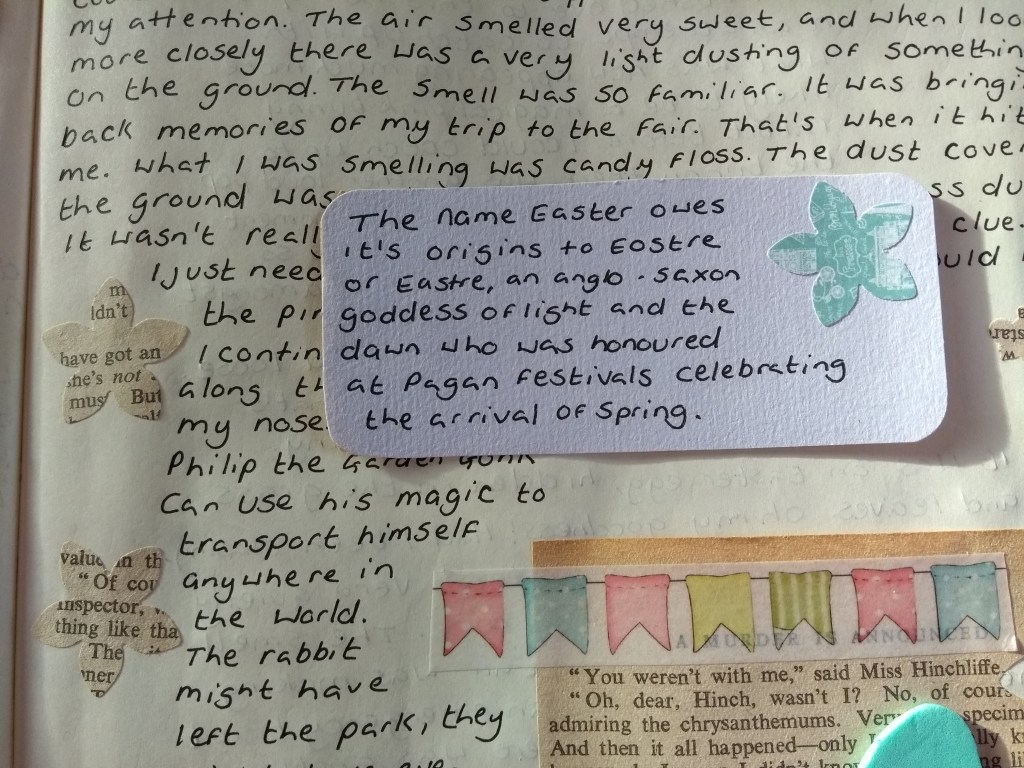 my attention. The air smelled very sweet, and when I
more closely there was a very light dusting of
on the ground. The smell was so familiar. It was
back memories of my trip to the fair. That's when it hit
me. What I was smelling was candy floss. The dust
the ground was
It wasn't
clue.
I just
the
I
along
my nose.
Philip the Garden
Can use his magic to
transport himself
anywhere in
the world.
The rabbit
might have
left the park, they
The name Easter owes
it's origins to Eostre
or Eastre, an anglo-saxon
goddess of light and the
dawn who was honoured
at Pagan festivals celebrating
the arrival of Spring.
have got an
he's not
But
value in th
"Of
inspector,
thing like tha
The
A MURDER IS ANNOUNCED
"You weren't with me," said Miss Hinchliffe
"Oh, dear, Hinch, wasn't I? No, of
admiring the chrysanthemums.
And then it all happened—only